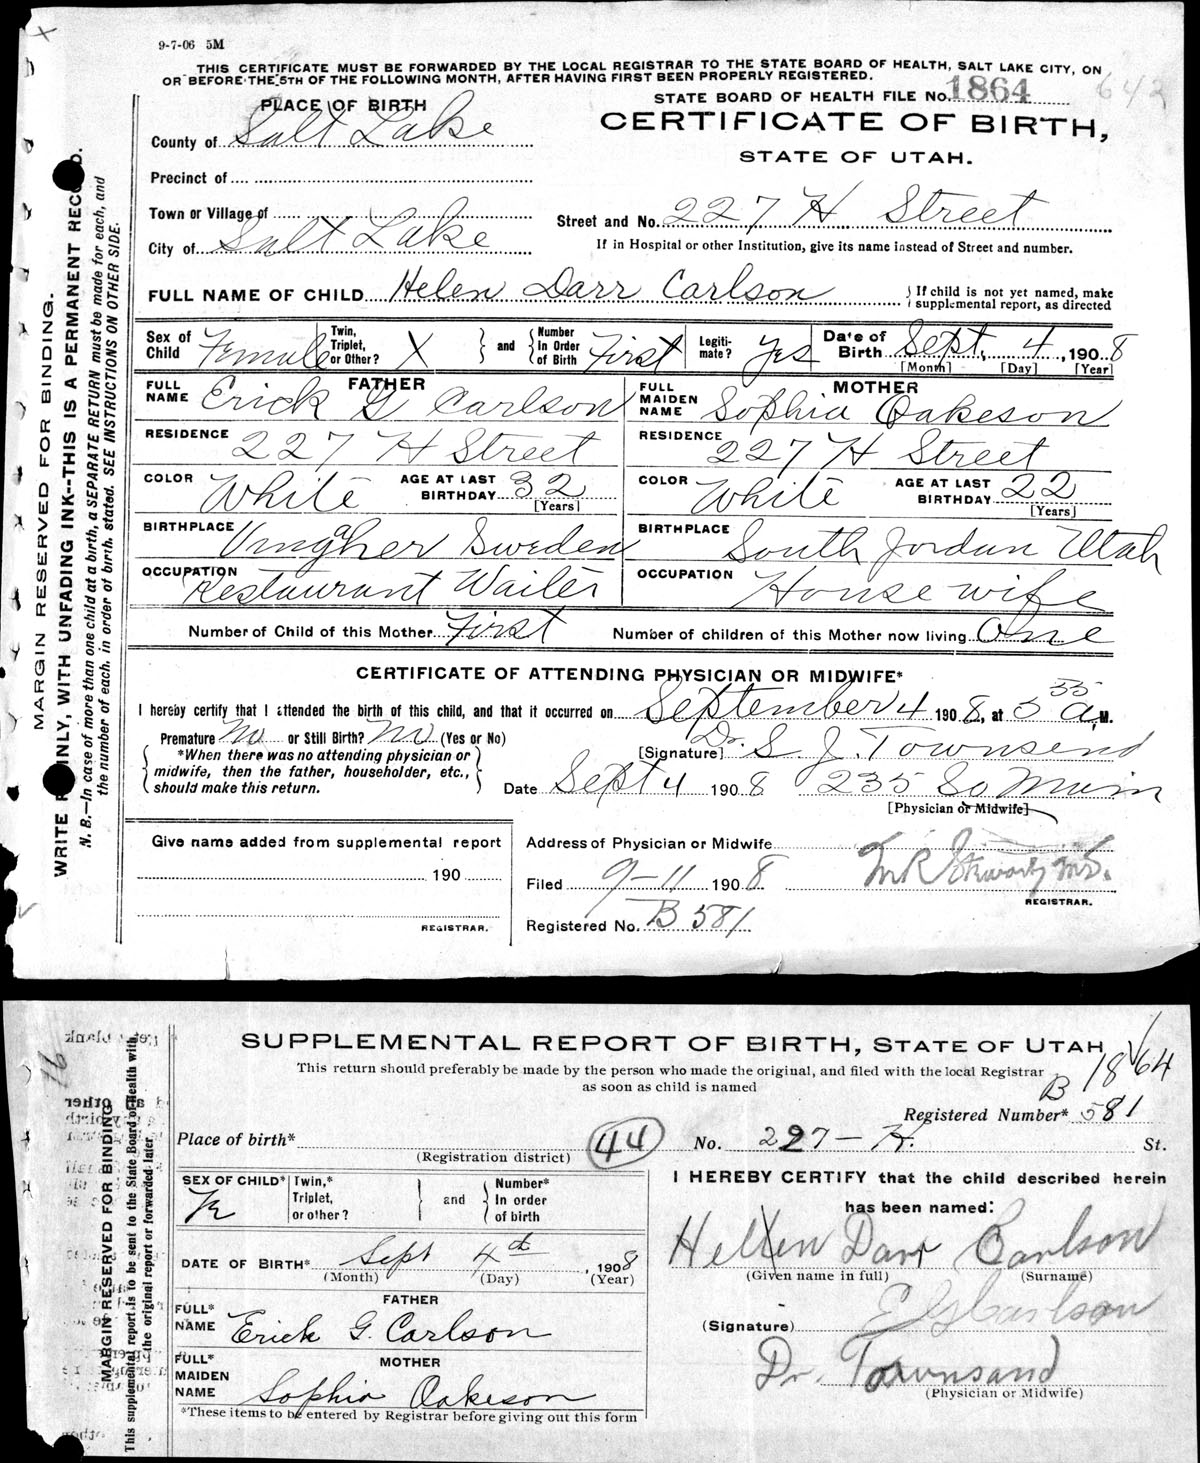 9-7-06 5M
THIS CERTIFICATE MUST BE FORWARDED BY THE LOCAL REGISTRAR TO THE STATE BOARD OF HEALTH, SALT LAKE CITY, ON
OR BEFORE THE 5TH OF THE FOLLOWING MONTH, AFTER HAVING FIRST BEEN PROPERLY REGISTERED.
STATE BOARD OF HEALTH FILE No. 1864 642
PLACE OF BIRTH
County of Salt Lake
CERTIFICATE OF BIRTH,
STATE OF UTAH.
Precinct of
Town or Village of
Street and No. 227 H Street
City of Salt Lake
If in Hospital or other Institution, give its name instead of Street and number.
FULL NAME OF CHILD Helen Darr Carlson
} If child is not yet named, make
supplemental report, as directed
Sex of Child Female
Twin, Triplet, or Other? X } and { Number In Order of Birth First
Legiti-mate? Yes
Date of Birth Sept. 4, 1908
[Month] [Day] [Year]
FATHER
FULL NAME Erick G Carlson
MOTHER
FULL MAIDEN NAME Sophia Oakeson
RESIDENCE 227 H Street
RESIDENCE 227 H Street
COLOR White AGE AT LAST BIRTHDAY 32 [Years]
COLOR White AGE AT LAST BIRTHDAY 22 [Years]
BIRTHPLACE Sweden
BIRTHPLACE South Jordan Utah
OCCUPATION Restaurant Waiter
OCCUPATION House wife
Number of Child of this Mother First Number of children of this Mother now living One
CERTIFICATE OF ATTENDING PHYSICIAN OR MIDWIFE*
I hereby certify that I attended the birth of this child, and that it occurred on September 4 1908, at 5 55 A.M.
Premature No or Still Birth? No (Yes or No)
{ *When there was no attending physician or
midwife, then the father, householder, etc.,
should make this return. }
[Signature] Dr. S. J. Townsend
Date Sept 4 1908 235 So Main
[Physician or Midwife]
Give name added from supplemental report
190
REGISTRAR.
Address of Physician or Midwife
Filed 9-11 1908
REGISTRAR.
Registered No. B 581
MARGIN RESERVED FOR BINDING.
WRITE PLAINLY, WITH UNFADING INK--THIS IS A PERMANENT RECORD.
N. B.—In case of more than one child at a birth, a SEPARATE RETURN must be made for each, and
the number of each, in order of birth, stated. SEE INSTRUCTIONS ON OTHER SIDE.
SUPPLEMENTAL REPORT OF BIRTH, STATE OF UTAH
This return should preferably be made by the person who made the original, and filed with the local Registrar
as soon as child is named
1864
Registered Number* B 581
Place of birth* 44 No. 227 - H. St.
(Registration district)
SEX OF CHILD*
Twin,* Triplet, or other? } and { Number* In order of birth
DATE OF BIRTH* Sept 4th, 1908
(Month) (Day) (Year)
FATHER
FULL* NAME Erick G. Carlson
MOTHER
FULL* MAIDEN NAME Sophia Oakeson
*These items to be entered by Registrar before giving out this form
I HEREBY CERTIFY that the child described herein
has been named:
Helen Darr Carlson
(Given name in full) (Surname)
(Signature) E G Carlson
Dr. Townsand
(Physician or Midwife)
MARGIN RESERVED FOR BINDING
This supplemental report is to be sent to the State Board of Health with
the original report or forwarded later